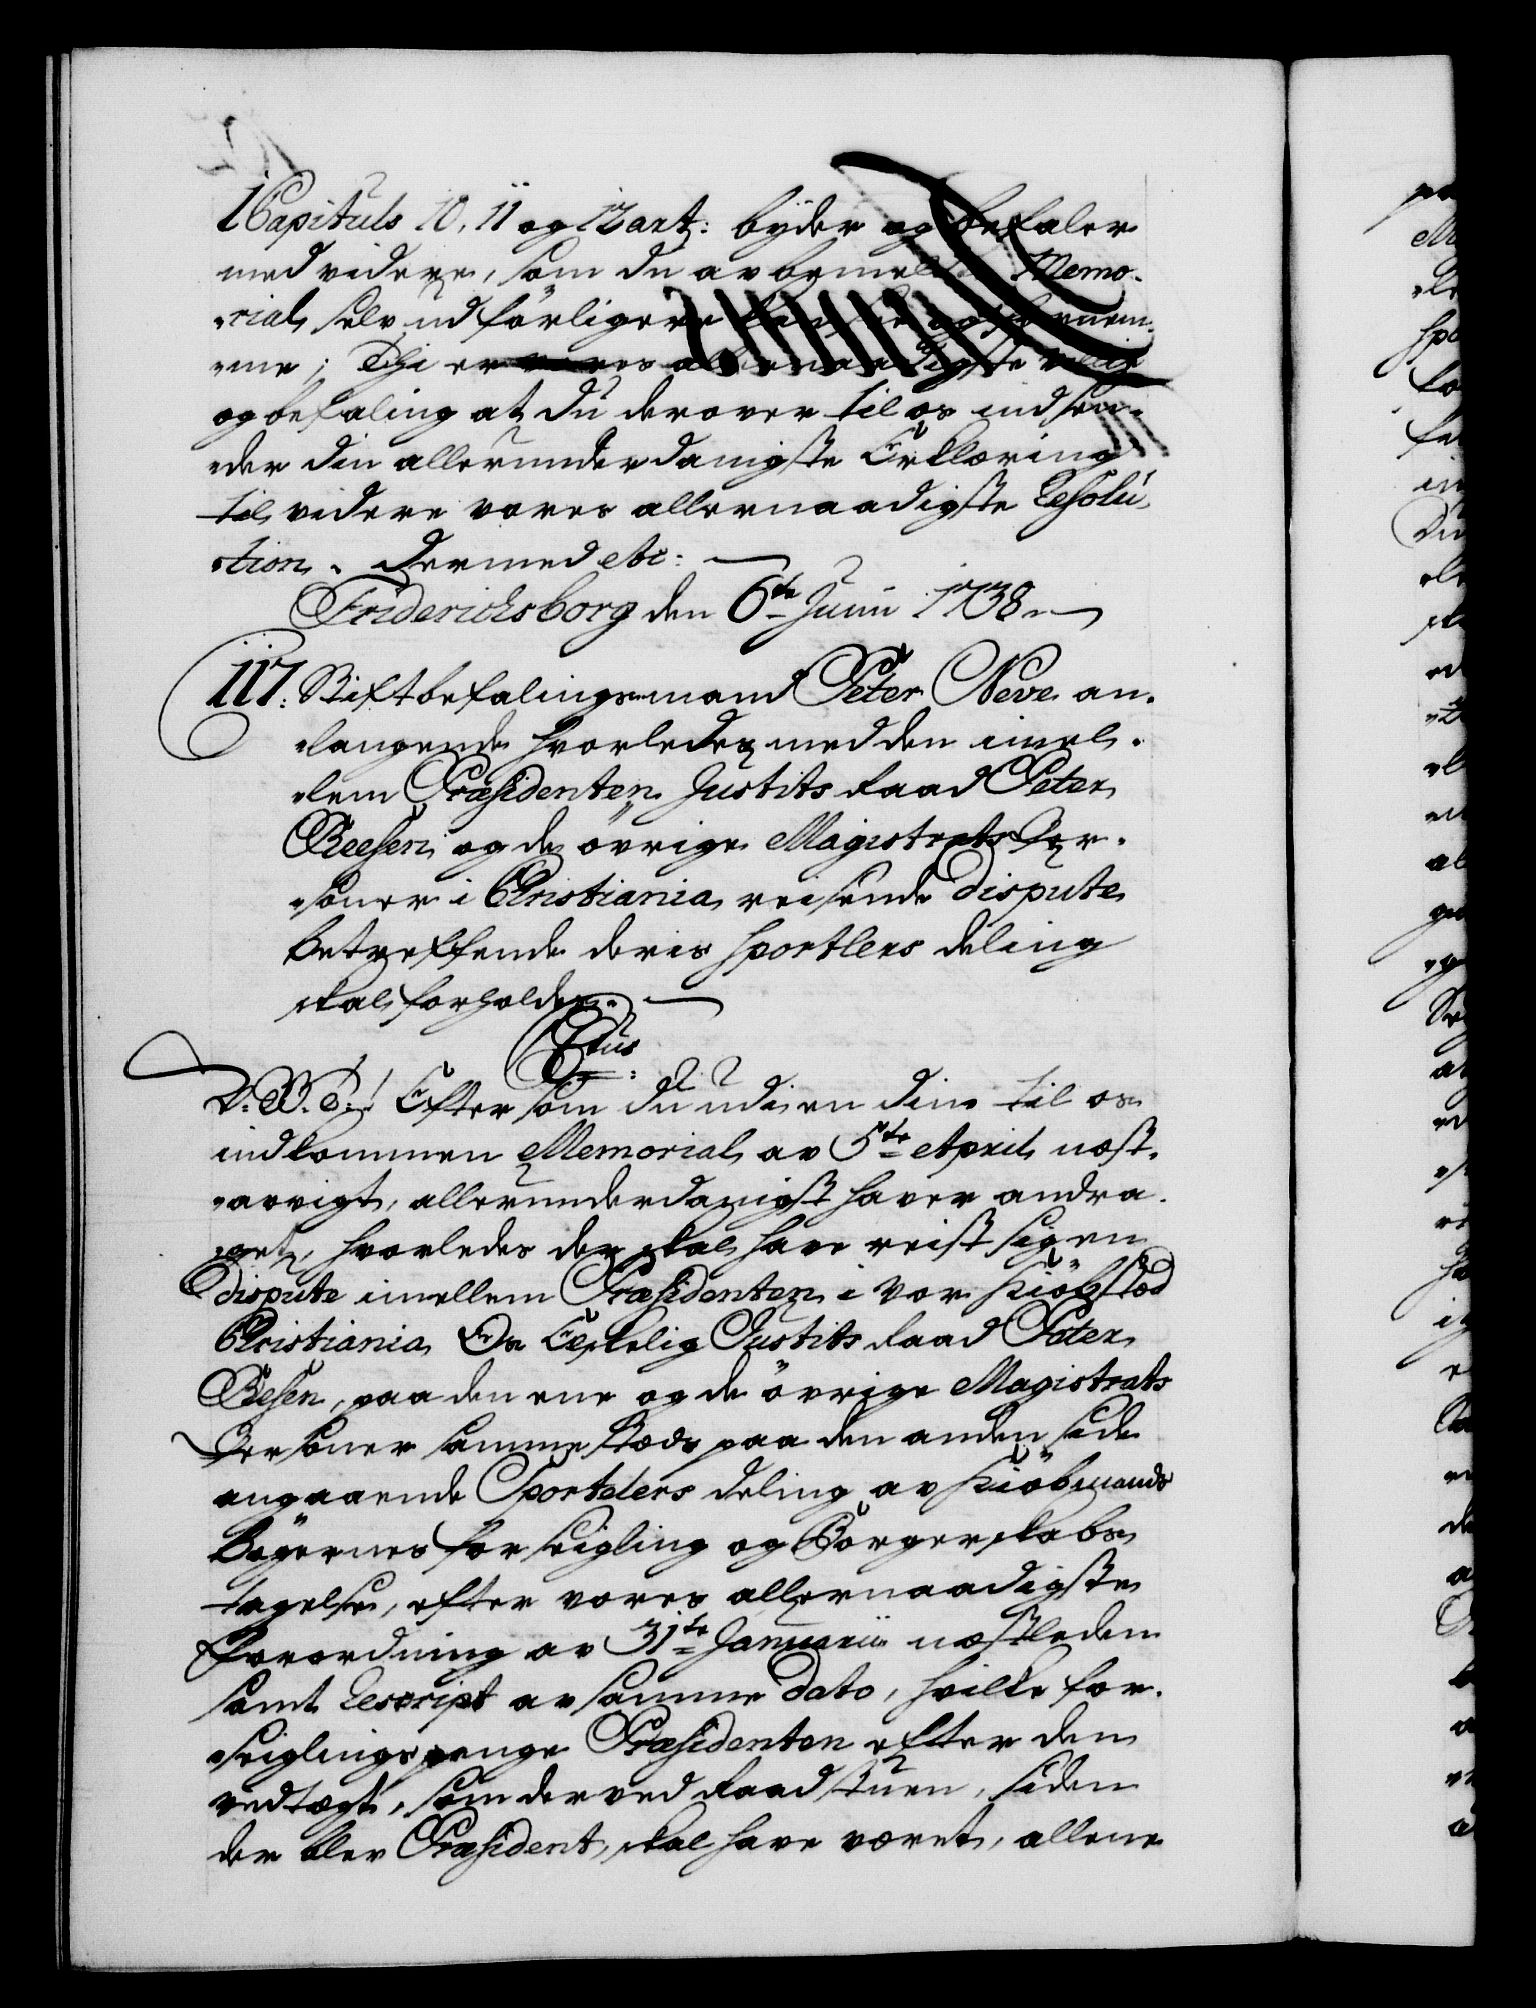 1 Capituls 10, 11 og 12 art: byder og befaler
med videre, som du av bemelte Memo-
„rial, selv udförligere kand see og fornem-
„me; Thi er vores allernaadigste villie
og befaling at du derover til os indsen-
„der din allerunderdanigste Erklæring
til videre vores allernaadigste Resolu-
„tion. Dermed etc:
Friderichsborg den 6te Junii 1738.
117: Stiftbefalingsmand Peter Neve an-
„langende hvorledes med den imel-
„lem Præsidenten Justits Raad Peter
Reesen og de övrige Magistrats Per-
„soner i Christiania reisende dispute
betreffende deris sportlers deling
skal forholdes.
C6tus
V: G: T:! Eftersom du udi en din til os
indkommen Memorial av 5te April næst-
„avvigt, allerunderdanigst haver andra-
„get, hvorledes der skal have reist sig en
dispute imellem Præsidenten i vor Kiöbstæd
Christiania Os Elskelig Justits Raad Peter
Resen, paa den ene og de övrige Magistrats
Personer sammestæds paa den anden side
angaaende Sportelers deling av Kiöbmands
Bögernes forseigling og Borgerskabs
tagelse, efter vores allernaadigste
Forordning av 31te Januarii næstleden
samt Rescript av samme dato, hvilke for-
„seiglings penge Præsidenten efter den
vedtægt, som der ved Raadstuen, siden
der blev Præsident, skal have været, allene